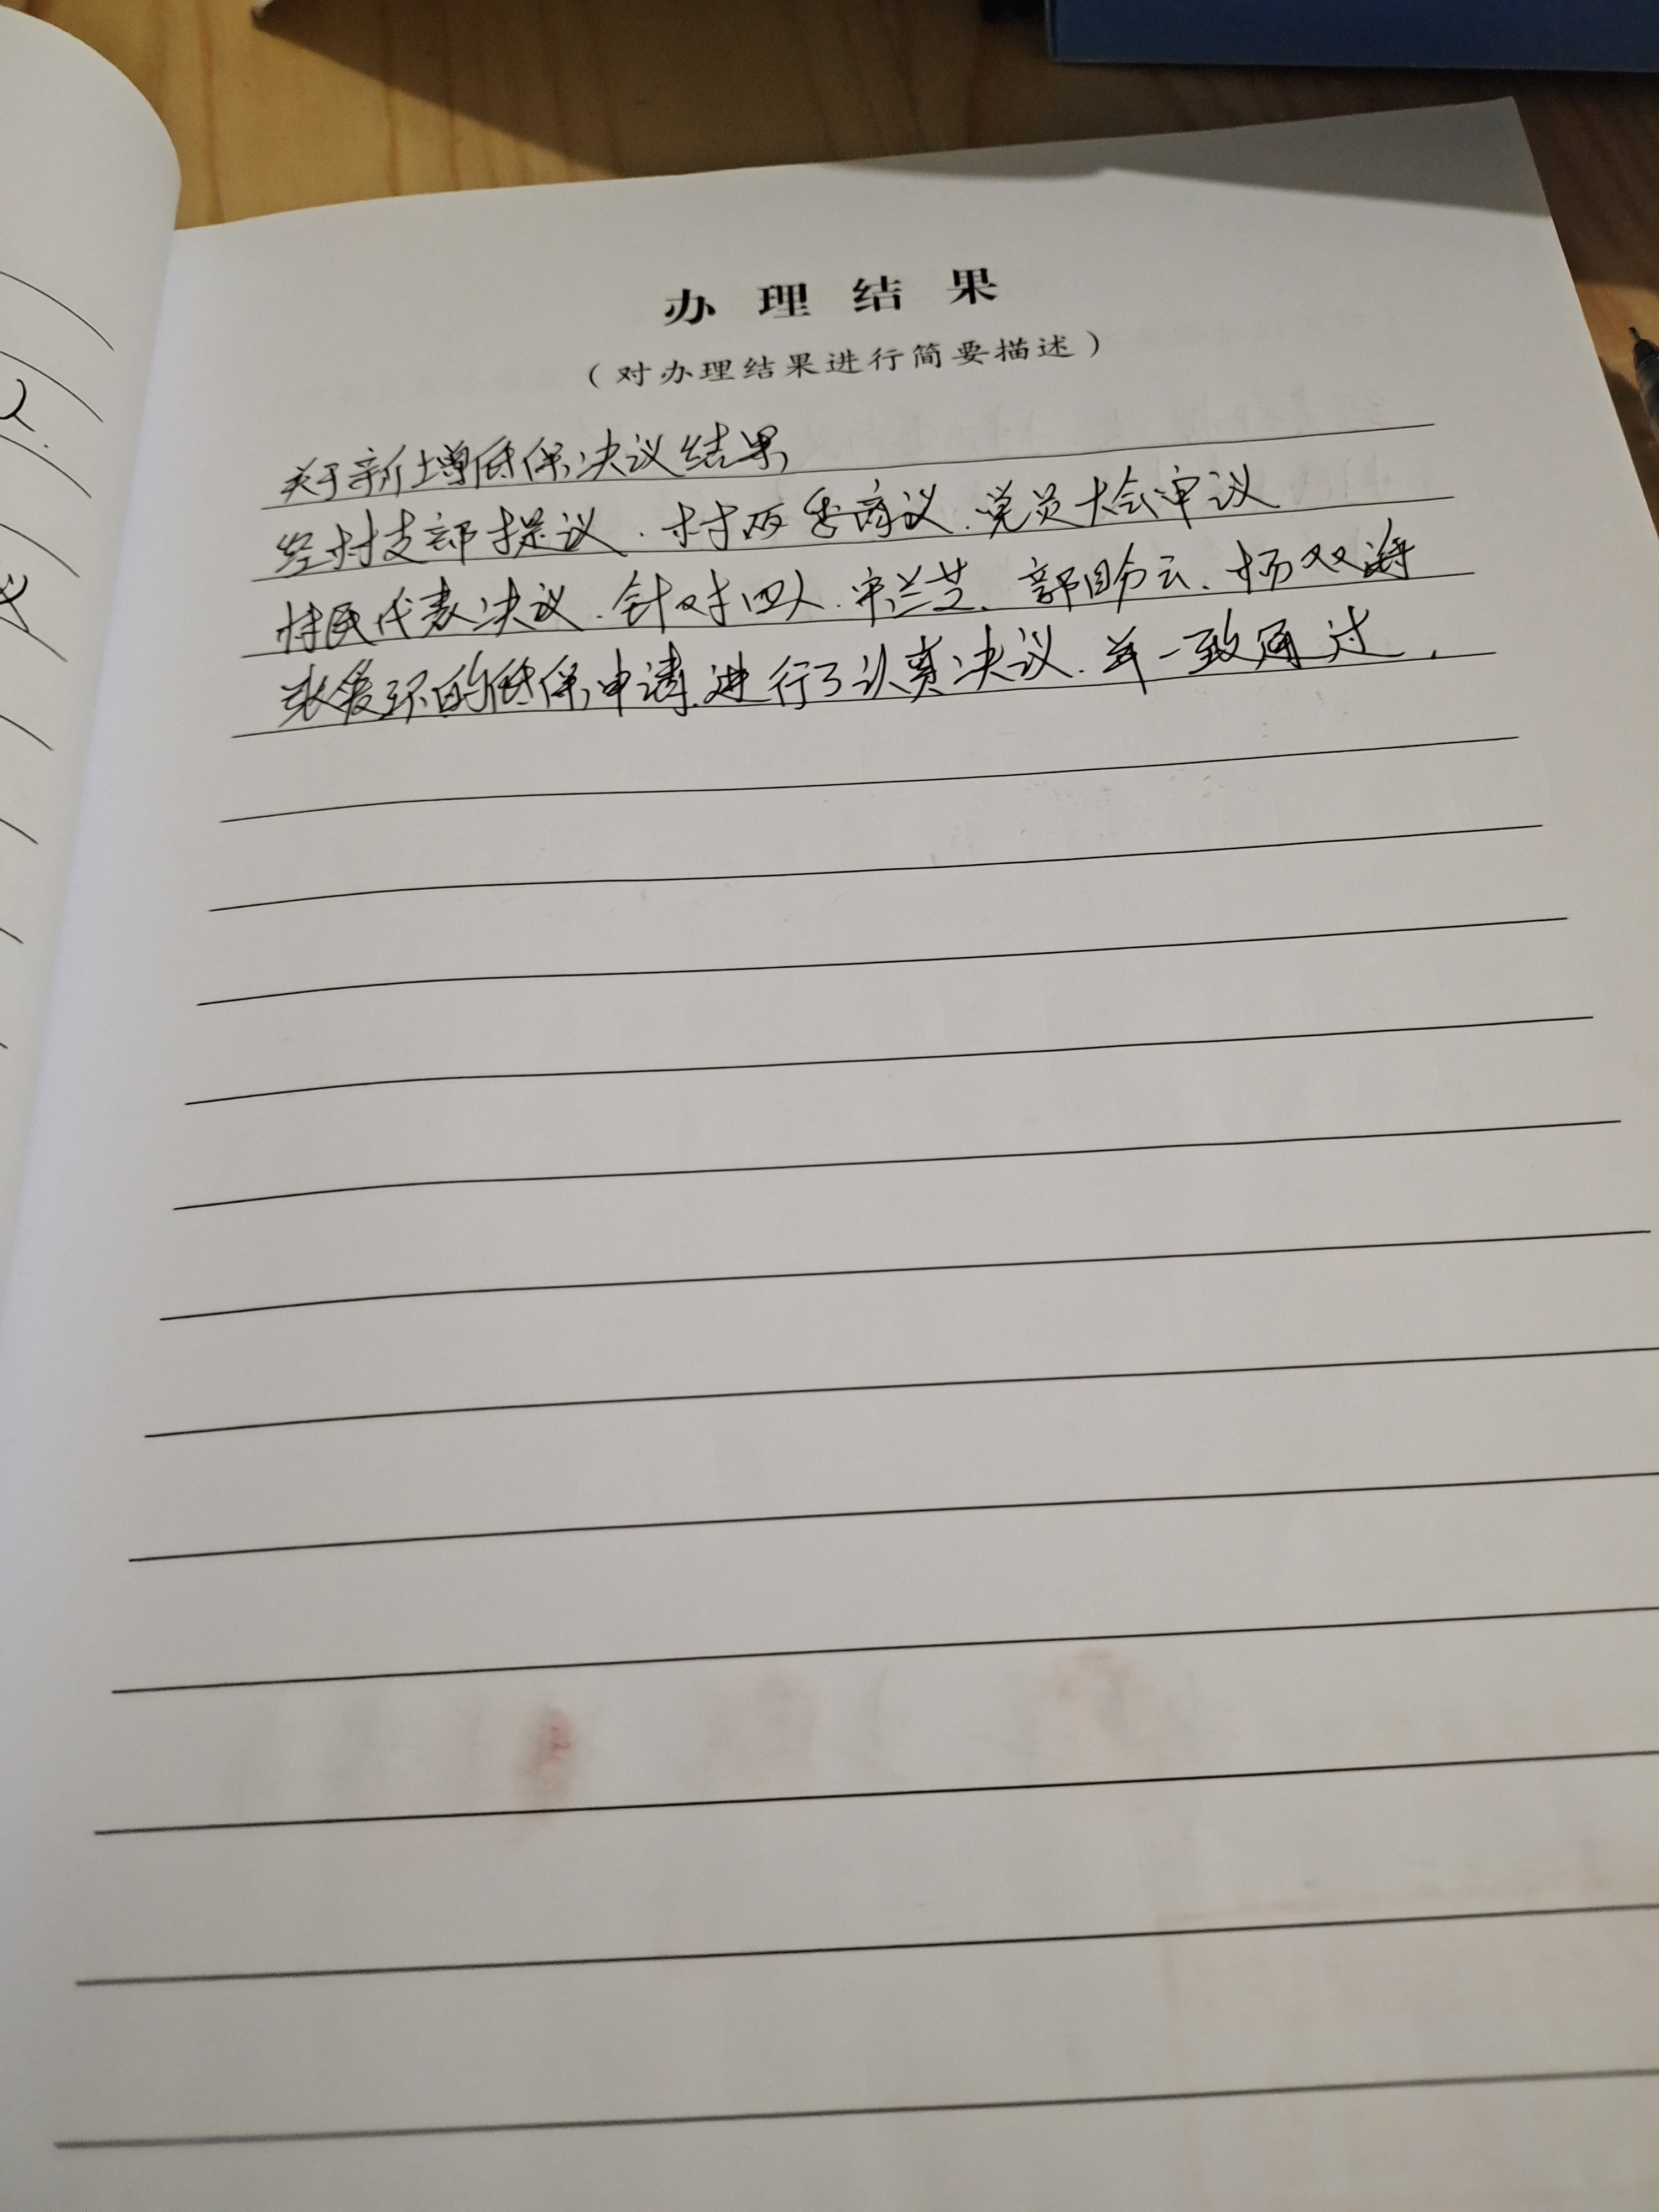 办理结果
（对办理结果进行简要描述）
关于新增低保决议结果
经村支部提议、村两委商议、党员大会审议
村民代表决议、针对四人、宋兰芝、郭盼云、杨双海
张爱环的低保申请、进行了认真决议、并一致同过.